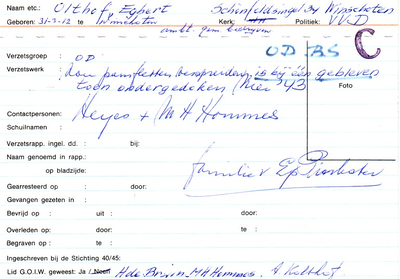 Naam etc.: Olthof, Egbert Schönfeldsingel 34 Winschoten
Geboren: 31-3-'12 te Kerk: Politiek: VVD
ambt. gem
Verzetsgroep : OD OD BS C
Verzetswerk : Zou pamfletten verspreiden, is bij één gebleven
Toen ondergedoken (Mei '43 Foto
Contactpersonen: Heyes + M H Hommes
Schuilnamen :
Verzetsrapp. ingel. dd. : bij:
Naam genoemd in rapp.:
op bladzijde: familie v Ep
Gearresteerd op : door:
Gevangen gezeten in :
Bevrijd op : uit : door:
Overleden op: door: te :
Begraven op : te :
Ingeschreven bij de Stichting 40/45:
Lid G.O.I.W. geweest: Ja / Neen H de Bruin - MH Hommes. A